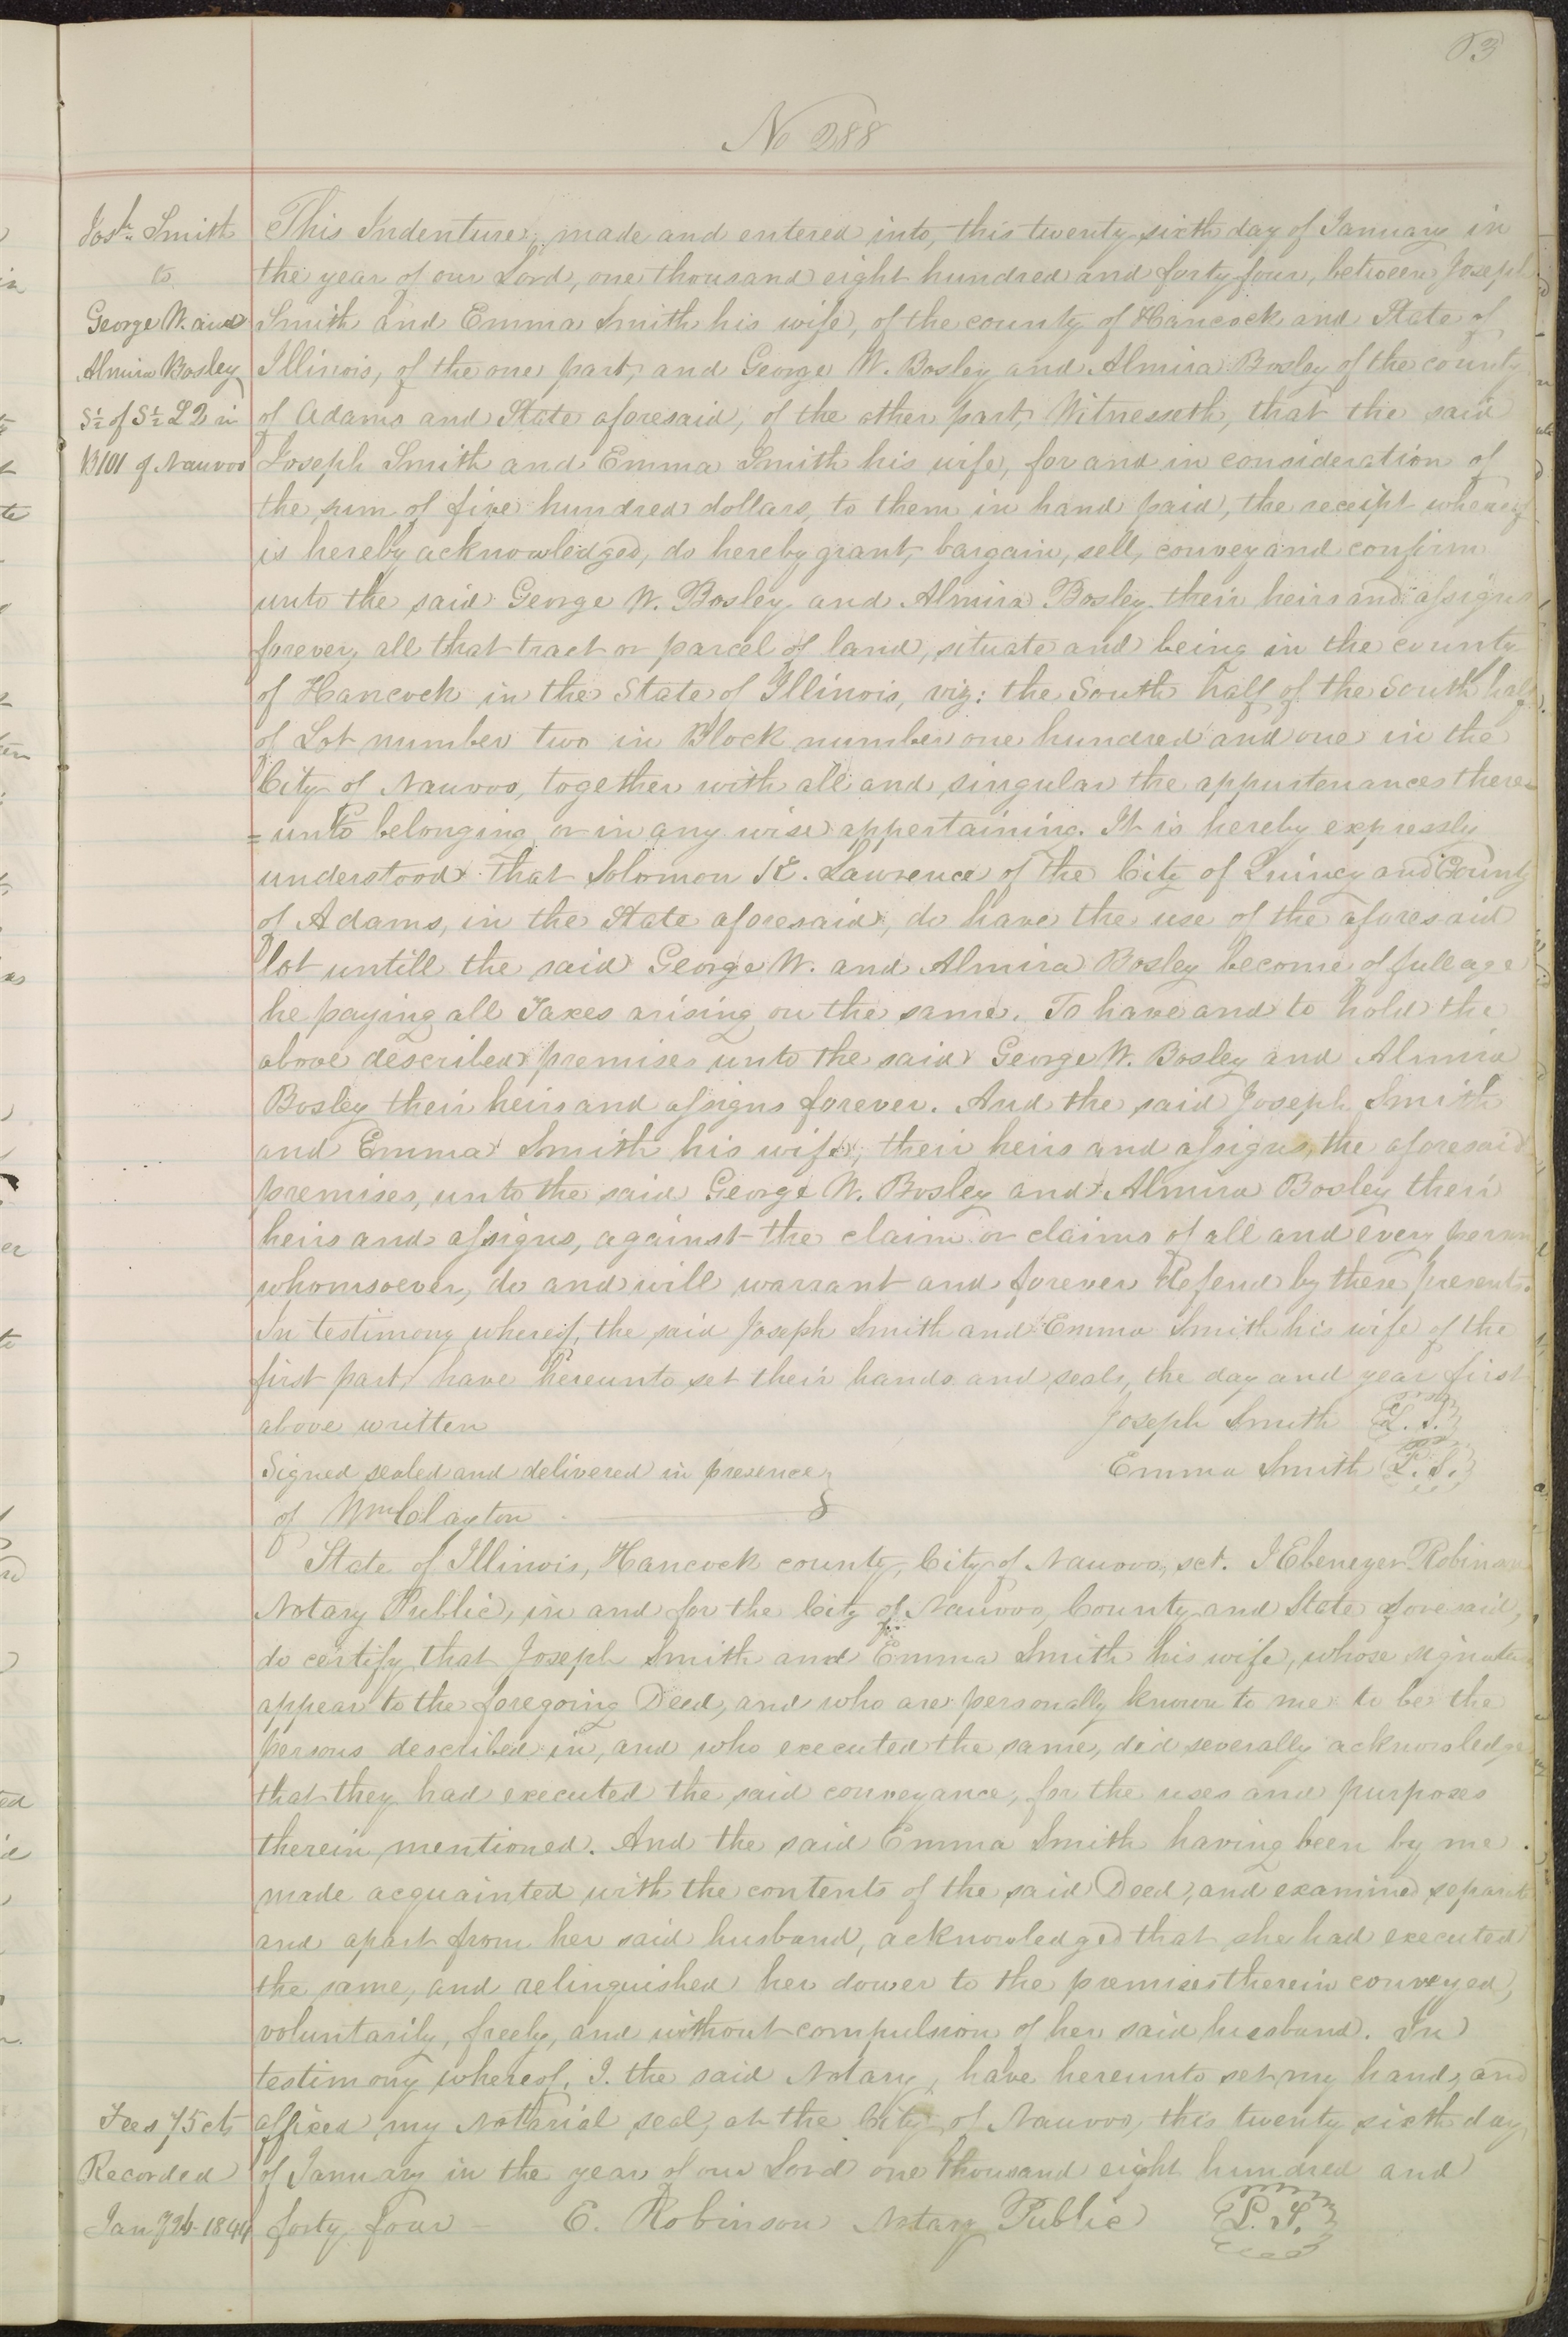 63
No 288
Josh. Smith
to
George W. and
Almira Bosley
S½ of S½ L2 in
B101 of Nauvoo
This Indenture, made and entered into, this twenty sixth day of January in
the year of our Lord, one thousand eight hundred and forty four, between Joseph
Smith and Emma Smith his wife, of the county of Hancock and State of
Illinois, of the one part, and George W. Bosley and Almira Bosley of the county
of Adams and State aforesaid, of the other part, Witnesseth, that the said
Joseph Smith and Emma Smith his wife, for and in consideration of
the sum of five hundred dollars, to them in hand paid, the receipt whereof
is hereby acknowledged, do hereby grant, bargain, sell, convey and confirm
unto the said George W. Bosley and Almira Bosley their heirs and assigns
forever, all that tract or parcel of land, situate and being in the county
of Hancock in the State of Illinois, viz: the South half of the South half
of Lot number two in Block number one hundred and one in the
City of Nauvoo, together with all and singular the appurtenances there=
=unto belonging or in any wise appertaining. It is hereby expressly
understood that Solomon K. Lawrence of the City of Quincy and County
of Adams, in the State aforesaid, do have the use of the aforesaid
lot untill the said George W. and Almira Bosley become of full age
he paying all Taxes arising on the same. To have and to hold the
above described premises unto the said George W. Bosley and Almira
Bosley their heirs and assigns forever. And the said Joseph Smith
and Emma Smith his wife, their heirs and assigns, the aforesaid
premises, unto the said George W. Bosley and Almira Bosley their
heirs and assigns, against the claim or claims of all and every person
whomsoever, do and will warrant and forever Defend by these presents.
In testimony whereof, the said Joseph Smith and Emma Smith his wife of the
first part have hereunto set their hands and seals, the day and year first
above written Joseph Smith L. S.
Signed sealed and delivered in presence Emma Smith L. S.
of Wm Clayton
State of Illinois, Hancock county, City of Nauvoo, sct. I Ebenezer Robinson
Notary Public, in and for the City of Nauvoo, County and State aforesaid,
do certify that Joseph Smith and Emma Smith his wife, whose signatures
appear to the foregoing Deed, and who are personally known to me to be the
persons described in, and who executed the same, did severally acknowledge
that they had executed the said conveyance, for the uses and purposes
therein mentioned. And the said Emma Smith having been by me
made acquainted with the contents of the said Deed, and examined separate
and apart from her said husband, acknowledged that she had executed
the same, and relinquished her dower to the premises therein conveyed,
voluntarily, freely, and without compulsion of her said husband. In
testimony whereof, I. the said Notary, have hereunto set my hand, and
affixed my Notarial seal, at the City of Nauvoo, this twenty sixth day
of January in the year of our Lord one thousand eight hundred and
forty four — E. Robinson Notary Public L. S.
Fees 75 cts
Recorded
Jany 26. 1844